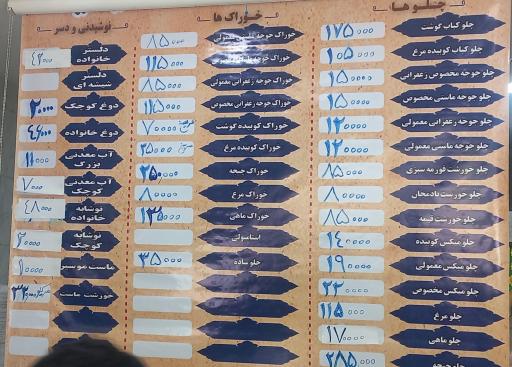 چلو ها
چلو کباب گوشت ۱۷۵۰۰۰
چلو کباب کوبیده مرغ ۱۰۵۰۰۰
چلو جوجه مخصوص زعفرانی ۱۵۰۰۰۰
چلو جوجه ماستی مخصوص ۱۵۰۰۰۰
چلو جوجه زعفرانی معمولی ۱۲۰۰۰۰
چلو جوجه ماستی معمولی ۱۲۰۰۰۰
چلو خورشت قورمه سبزی ۸۵۰۰۰
چلو خورشت بادمجان ۸۰۰۰۰
چلو خورشت قیمه ۸۵۰۰۰
چلو میکس کوبیده ۱۴۰۰۰۰
چلو میکس معمولی ۱۹۰۰۰۰
چلو میکس مخصوص ۲۲۰۰۰۰
چلو مرغ ۱۱۵۰۰۰
چلو ماهی ۱۷۰۰۰۰
۲۸۵۰۰۰
خوراک ها
خوراک جوجه ماستی معمولی ۸۵۰۰۰
خوراک جوجه ۱۱۵۰۰۰
خوراک جوجه زعفرانی معمولی ۸۵۰۰۰
خوراک جوجه زعفرانی مخصوص ۱۱۵۰۰۰
خوراک کوبیده گوشت ۷۰۰۰۰
خوراک کوبیده مرغ ۳۵۰۰۰
خوراک جنجه ۲۵۰۰۰۰
خوراک مرغ ۸۰۰۰۰
خوراک ماهی ۱۳۵۰۰۰
استامبولی
چلو ساده ۳۵۰۰۰
نوشیدنی و دسر
دلستر خانواده
دلستر شیشه ای
دوغ کوچک ۲۰۰۰۰
دوغ خانواده ۴۶۰۰۰
آب معدنی بزرگ ۱۱۰۰۰
آب معدنی کوچک ۷۰۰۰
نوشابه خانواده ۴۸۰۰۰
نوشابه کوچک ۲۰۰۰۰
ماست موسیر ۱۰۰۰۰
خورشت ماست